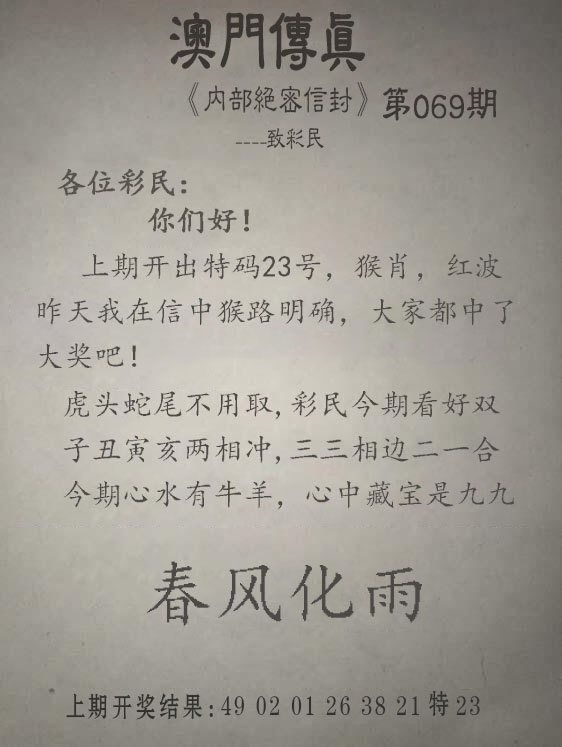 澳門傳眞
《内部絕密信封》第069期
----致彩民
各位彩民：
你们好！
上期开出特码23号，猴肖，红波
昨天我在信中猴路明确，大家都中了
大奖吧！
虎头蛇尾不用取,彩民今期看好双
子丑寅亥两相冲,三三相边二一合
今期心水有牛羊，心中藏宝是九九
春风化雨
上期开奖结果:49 02 01 26 38 21 特 23